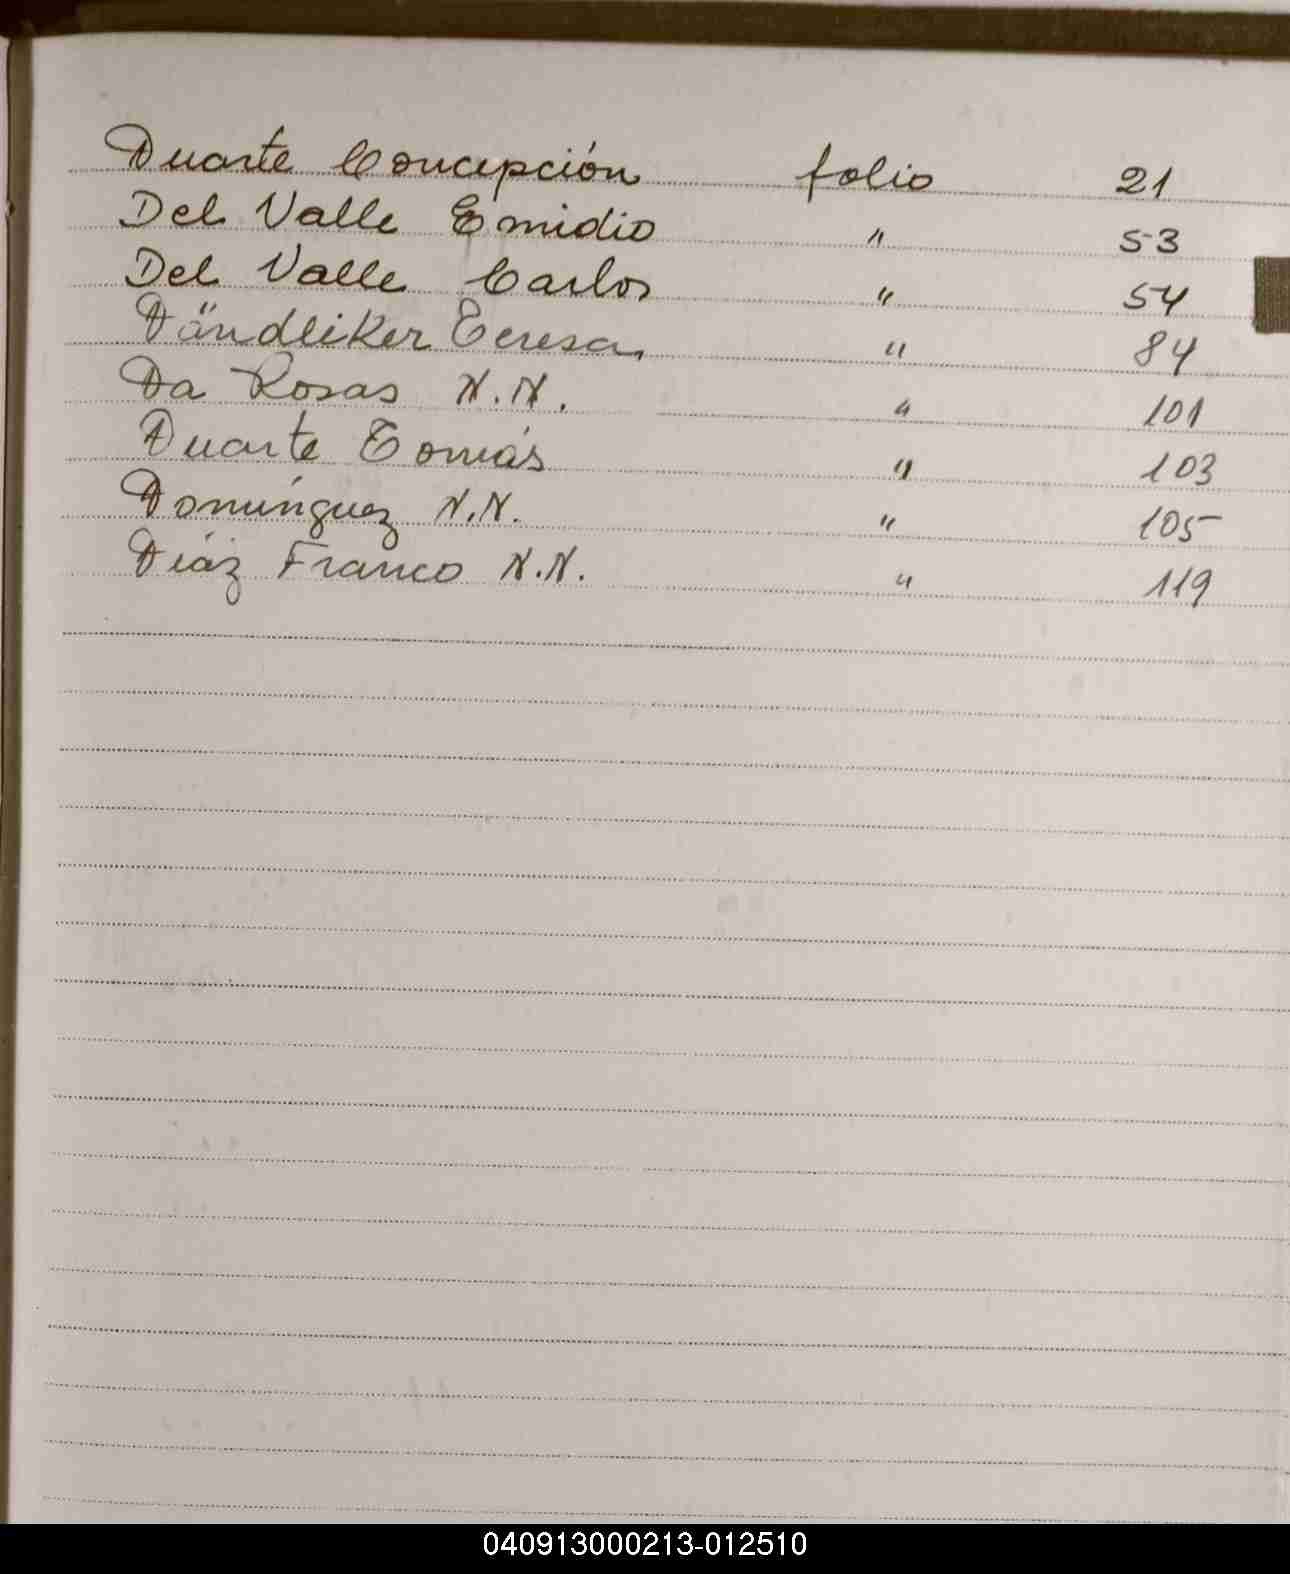 Duarte Concepción folio 21
Del Valle Emidio " 53
Del Valle Carlos " 54
Dändliker Teresa " 84
Da Rosas N.N. " 101
Duarte Tomás " 103
Domínguez N.N. " 105
Díaz Franco N.N. " 119
040913000213-012510